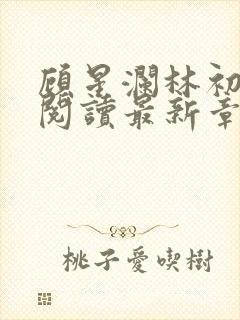 顾星瀾林初
閱讀最新章
桃子愛喫樹